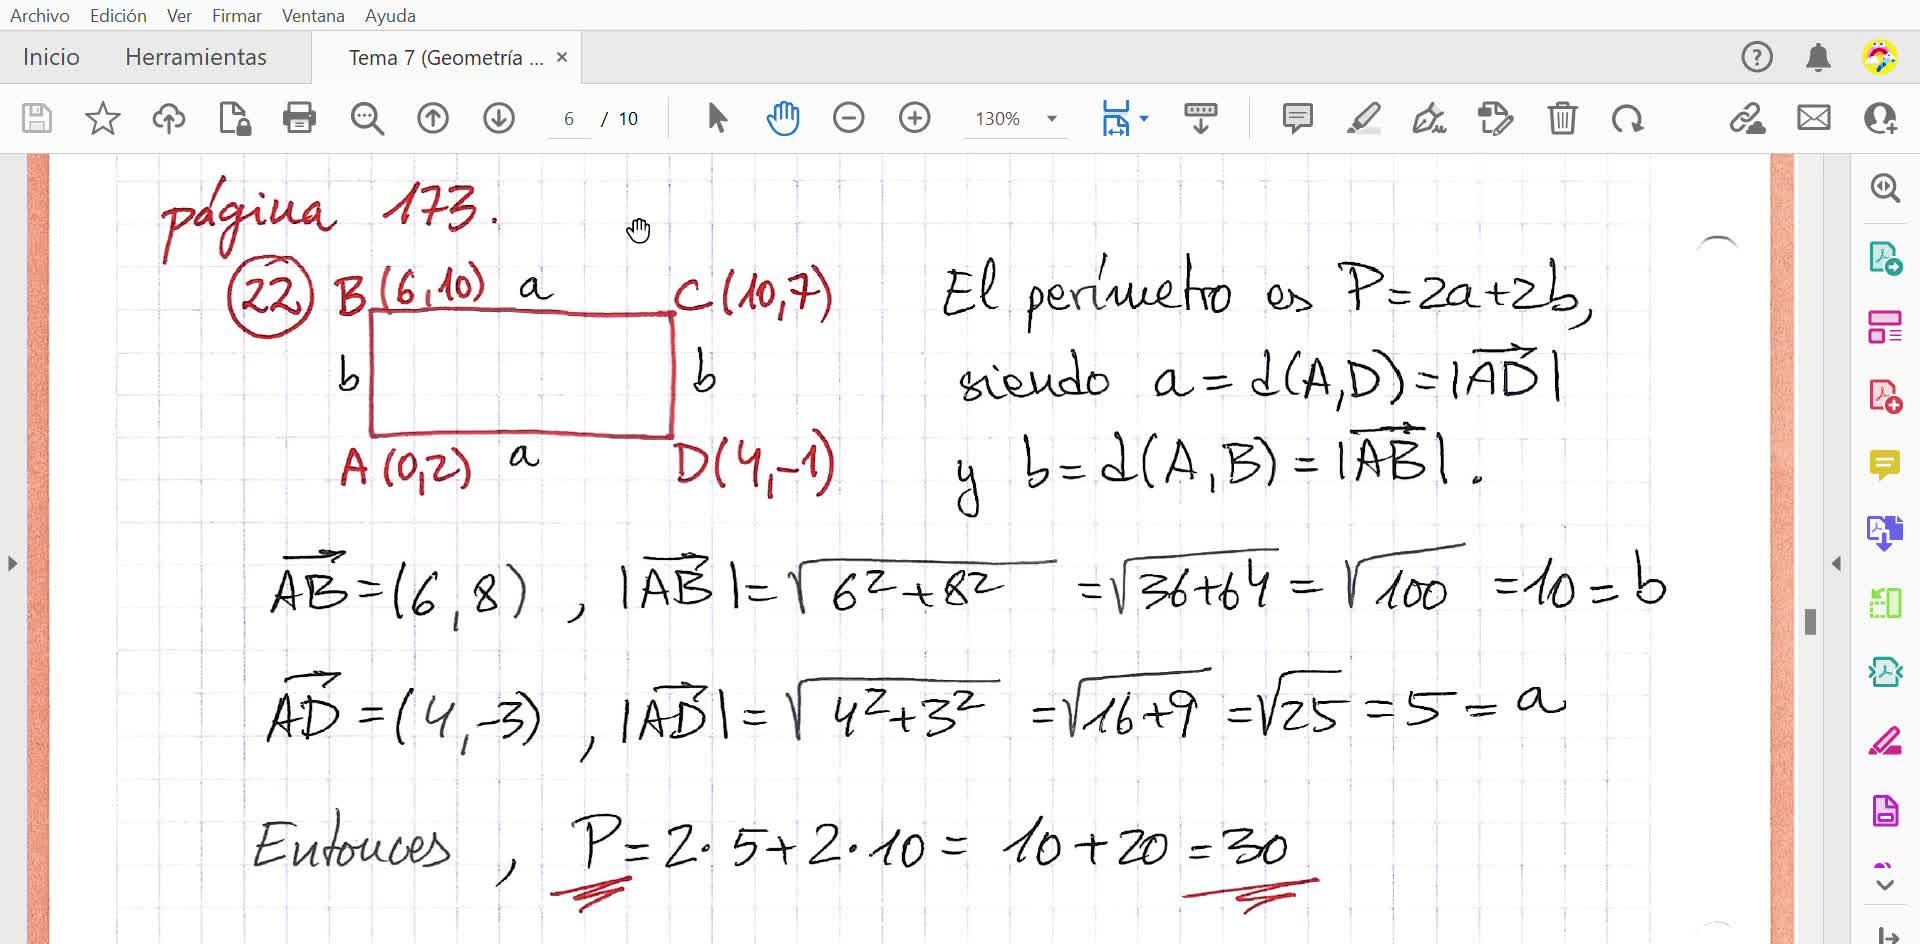 Archivo Edición Ver Firmar Ventana Ayuda
Inicio Herramientas Tema 7 (Geometría ... ×
6 / 10 130%
página 173.
22 B(6,10) a C(10,7)
b b
A(0,2) a D(4,-1)
El perímetro es P=2a+2b,
siendo a = d(A,D) = |AD|
y b = d(A,B) = |AB|.
AB = (6,8) , |AB| = √6²+8² = √36+64 = √100 = 10 = b
AD = (4,-3) , |AD| = √4²+3² = √16+9 = √25 = 5 = a
Entonces , P = 2·5+2·10 = 10+20 = 30